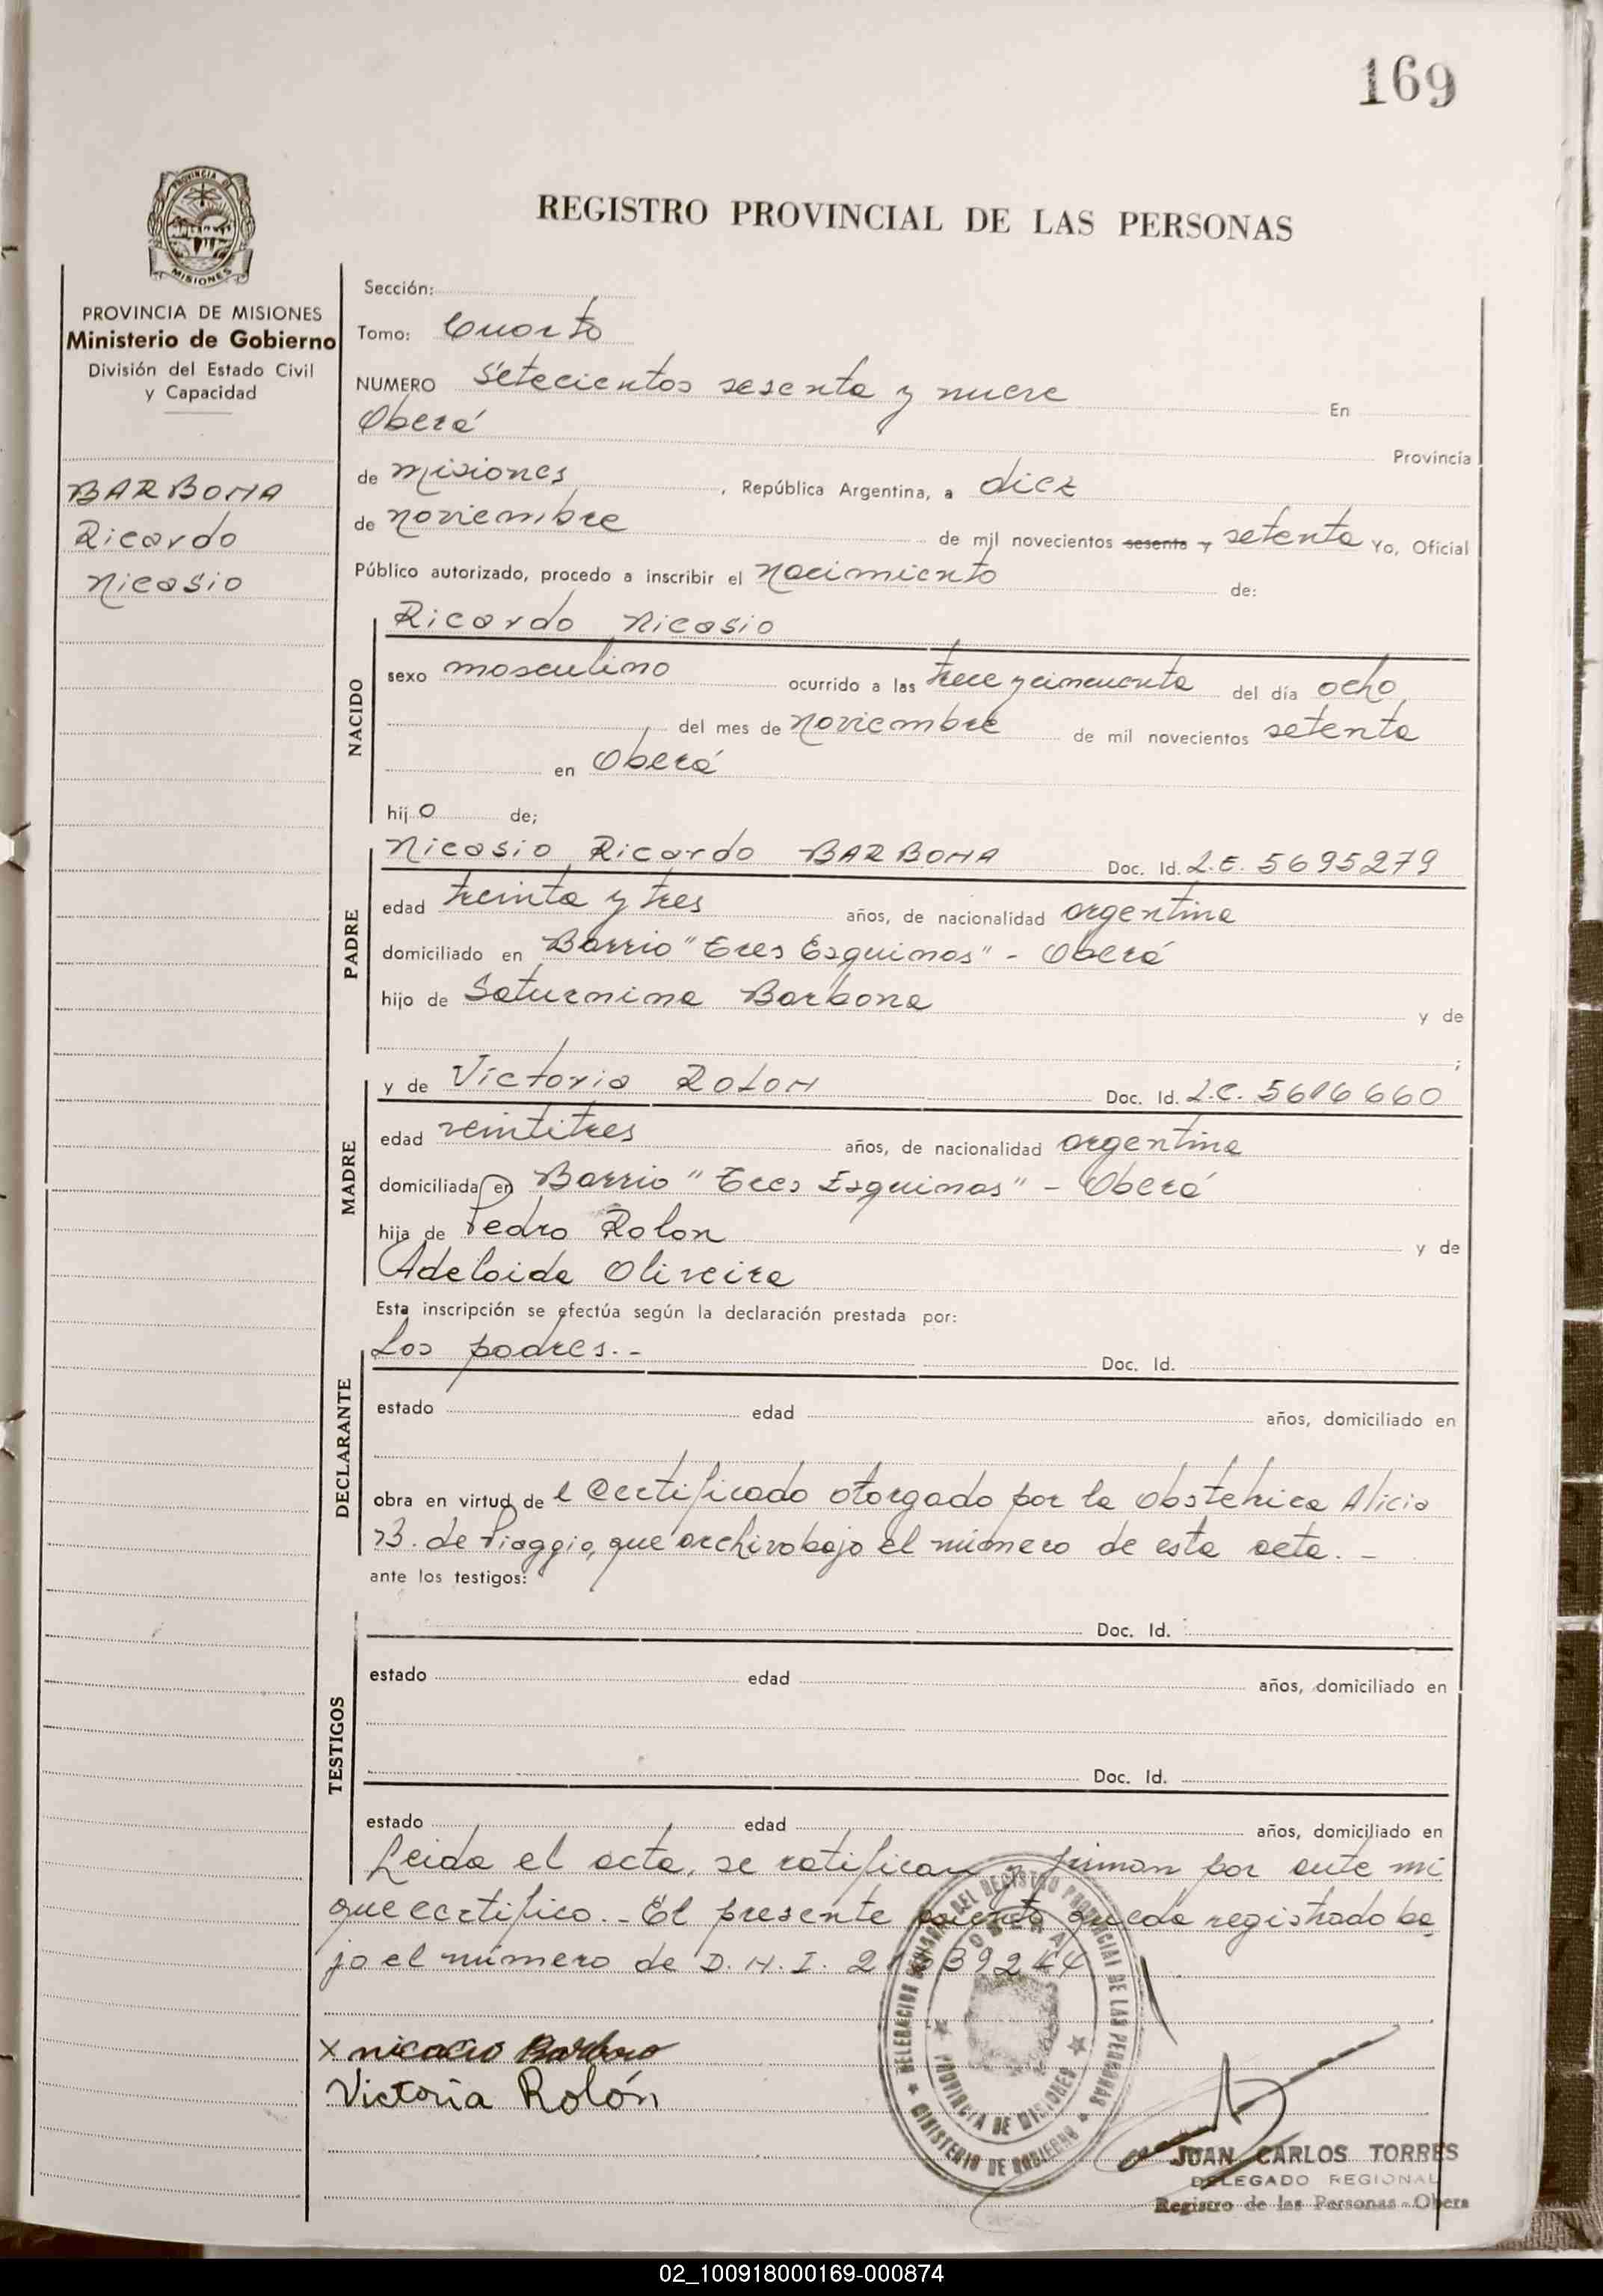 169
PROVINCIA DE
MISIONES
REGISTRO PROVINCIAL DE LAS PERSONAS
PROVINCIA DE MISIONES
Ministerio de Gobierno
División del Estado Civil
y Capacidad
BARBONA
Ricardo
Nicasio
Sección:
Tomo: Cuarto
NUMERO Setecientos sesenta y nueve En
Oberá Provincia
de misiones, República Argentina, a diez
de noviembre de mil novecientos sesenta y setenta Yo, Oficial
Público autorizado, procedo a inscribir el nacimiento de:
NACIDO
Ricardo Nicasio
sexo masculino ocurrido a las trece y cincuenta del día ocho
del mes de noviembre de mil novecientos setenta
en Oberá
hijo de;
PADRE
Nicasio Ricardo BARBONA Doc. Id. L.E. 5695279
edad treinta y tres años, de nacionalidad argentina
domiciliado en Barrio "Tres Esquinas" - Oberá
hijo de Saturnina Barbona y de
;
MADRE
y de Victoria ROLON Doc. Id. L.C. 5616660
edad veintitres años, de nacionalidad argentina
domiciliada en Barrio "Tres Esquinas" - Oberá
hija de Pedro Rolon y de
Adelaida Oliveira
Esta inscripción se efectúa según la declaración prestada por:
DECLARANTE
Los padres.- Doc. Id.
estado edad años, domiciliado en
obra en virtud de l certificado otorgado por la obstetrica Alicia
B. de Piaggio, que archivo bajo el número de esta acta. -
ante los testigos:
TESTIGOS
Doc. Id.
estado edad años, domiciliado en
Doc. Id.
estado edad años, domiciliado en
Leida el acta, se ratifican y firman por ante mí
que certifico.- El presente queda registrado ba
jo el número de D.N.I.
x nicacio Barbona
Victoria Rolón
DELEGACION REGIONAL DEL REGISTRO PROVINCIAL DE LAS PERSONAS
MINISTERIO DE GOBIERNO
OBERA
PROVINCIA DE MISIONES
JUAN CARLOS TORRES
DELEGADO REGIONAL
Registro de las Personas - Obera
02_100918000169-000874